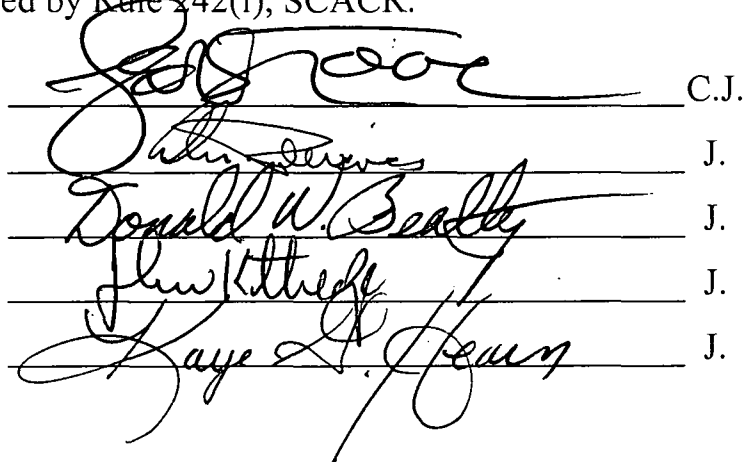 ed by Rule 242(i), SCACR.
C.J.
J.
Donald W. Beatty J.
John Kittredge J.
Kaye G. Hearn J.